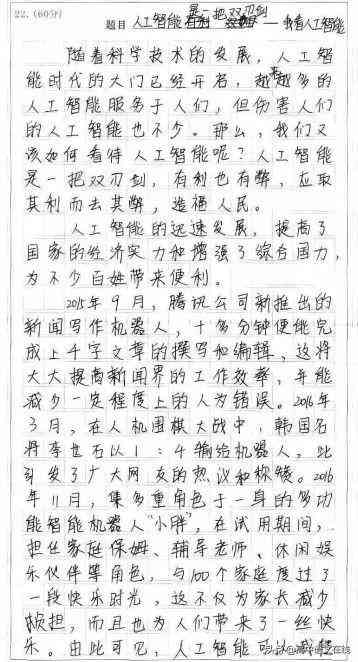 22.(60分)
是一把双刃剑
题目 人工智能 —— 看人工智能
随着科学技术的发展，人工智
能时代的大门已经开名，越来越多的
人工智能服务于人们，但伤害人们
的人工智能也不少。那么，我们又
该如何看待人工智能呢？人工智能
是一把双刃剑，有利也有弊，应取
其利而去其弊，造福人民。
人工智能的迅速发展，提高了
国家的经济实力和增强了综合国力，
为不少百姓带来便利。
2015年9月，腾讯公司新推出的
新闻写作机器人，十多分钟便能完
成上千字文章的撰写和编辑，这将
大大提高新闻界的工作效率，并能
减少一定程度上的人为错误。2016年
3月，在人机围棋大战中，韩国名
将李世石以1：4输给机器人，此
引发了广大网友的热议和称赞。2016
年11月，集多重角色于一身的多功
能智能机器人“小胖”，在试用期间，
担任家庭保姆、辅导老师、休闲娱
乐伙伴等角色，与100个家庭度过了
一段快乐时光，这不仅为家长减少
负担，而且也为人们带来了一丝快
乐。由此可见，人工智能可以减轻